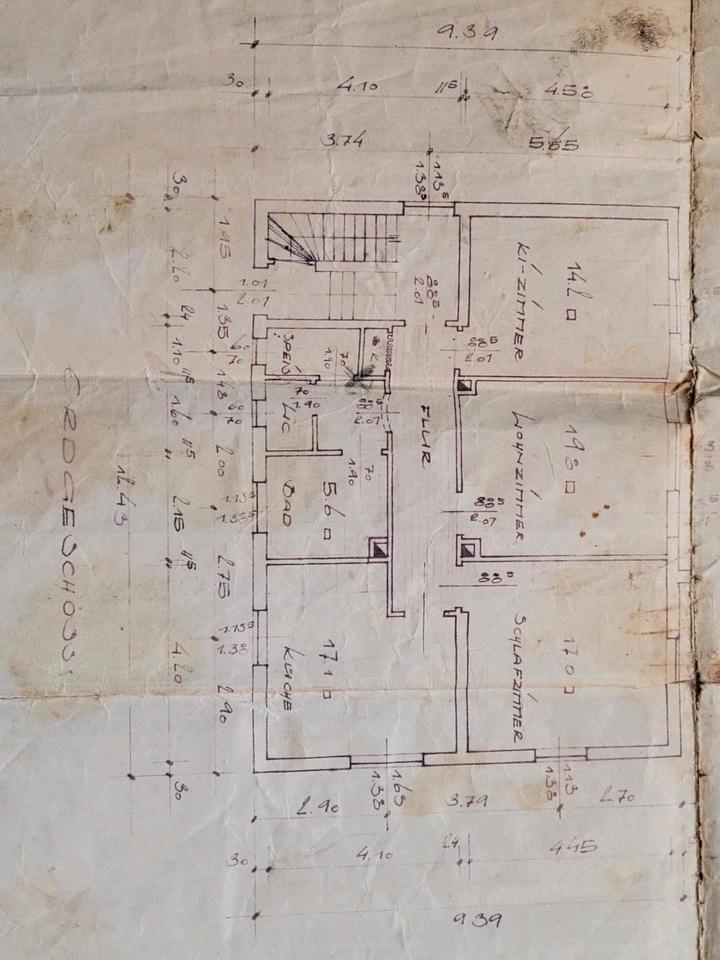 ERDGESCHOSS
12.43
30
2.20
24
1.10
11⁵
1.60
11⁵
2.15
11⁵
4.20
30
1.45
1.35
1.43
2.00
2.75
2.90
1.01
2.01
60
70
60
70
1.13⁵
1.38⁵
1.13⁵
1.38
9.39
30
4.10
11⁵
4.50
3.74
5.65
1.13⁵
1.38⁵
KI-ZIMMER
14.2
WOHNZIMMER
19.8
SCHLAFZIMMER
17.0
FLUR
88⁵
2.01
88⁵
2.01
88⁵
2.01
88⁵
2.01
88⁵
SPEIS
70
1.90
WC
70
1.90
BAD
5.6
70
1.90
KÜCHE
17.1
1.63
1.38
1.13
1.38
2.90
3.79
2.70
30
4.10
24
4.45
9.39